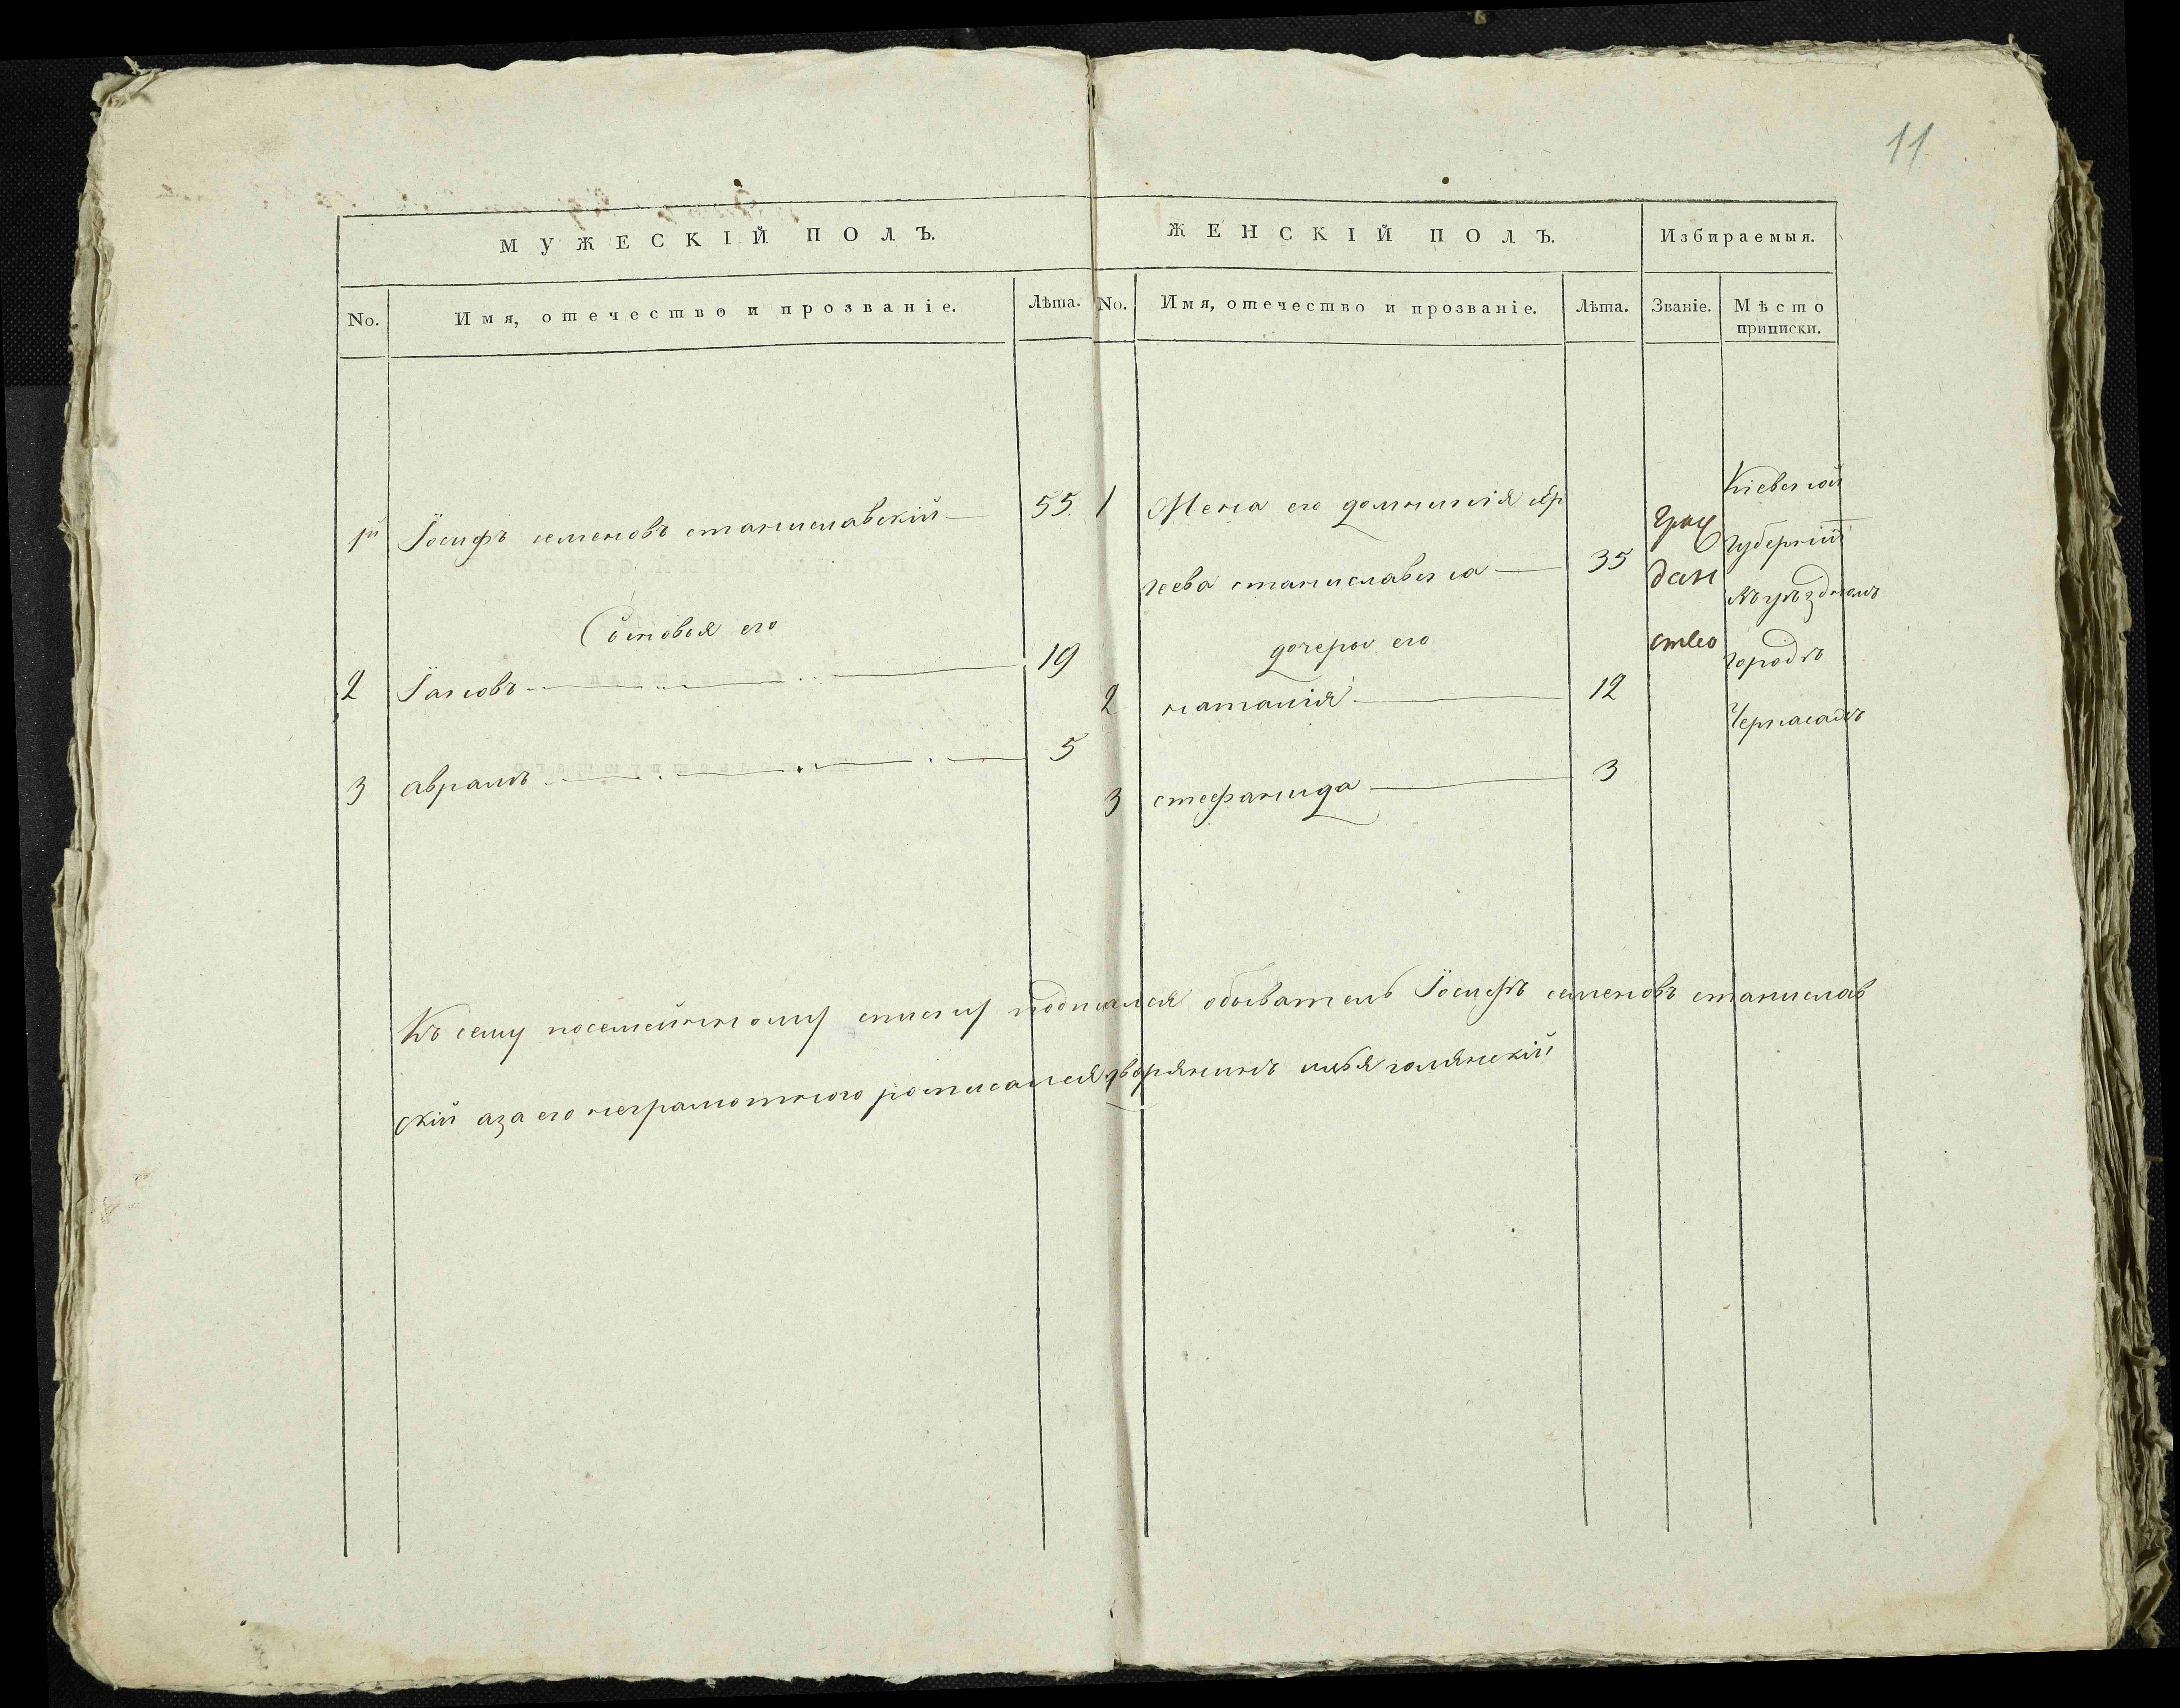 11
МУЖЕСКІЙ ПОЛЪ.
ЖЕНСКІЙ ПОЛЪ.
Избираемыя.
No.
Имя, отечество и прозваніе.
Лѣта.
No.
Имя, отечество и прозваніе.
Лѣта.
Званіе.
Мѣсто
приписки.
1й Іосифъ семеновъ станиславскій 55
Сыновья его
2 Іаковъ 19
3 аврамъ 5
1 Жена его домникія
геева станиславска 35
дочеры его
2 наталія 12
3 стефанида 3
граж
дан
ство
Кіевской
губерніи
въ уѣздномъ
городѣ
Черкасахъ
Къ сему посемейнному списку подписался обыватель Іосифъ семеновъ станислав
скій аза его неграмотного росписался дворянинъ илья голянскій